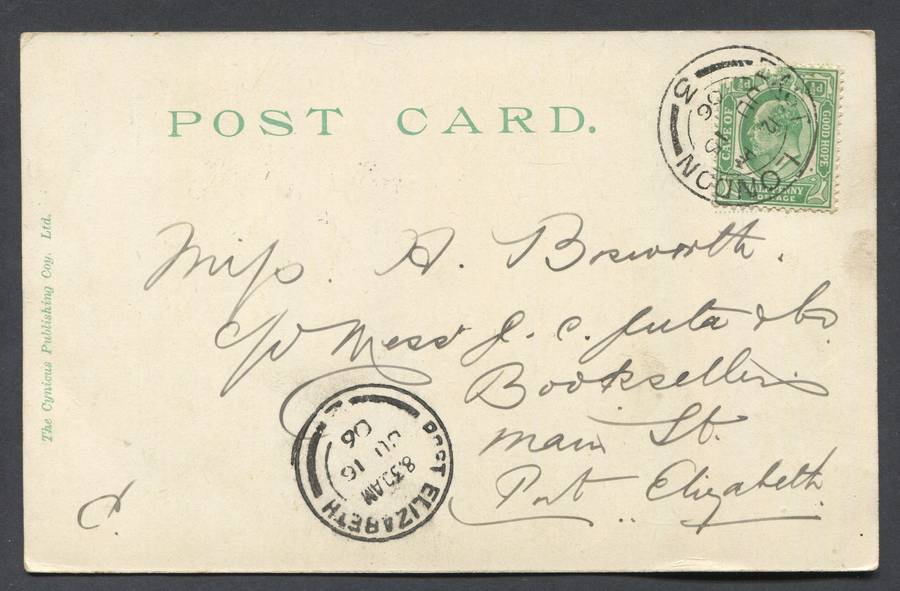 POST CARD.
CAPE OF GOOD HOPE
HALFPENNY
POSTAGE
EAST LONDON
3
06
Miss. A. Bosworth.
c/o Messrs J. C. Juta & Co
Booksellers
Main St.
Port Elizabeth
The Cynicus Publishing Coy. Ltd.
PORT ELIZABETH
8.30AM
JU 16
06